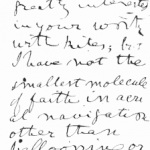 greatly interested
in your work
with kites; but
I have not the
smallest molecule
of faith in aeri
al navigation
other than
ballooning or